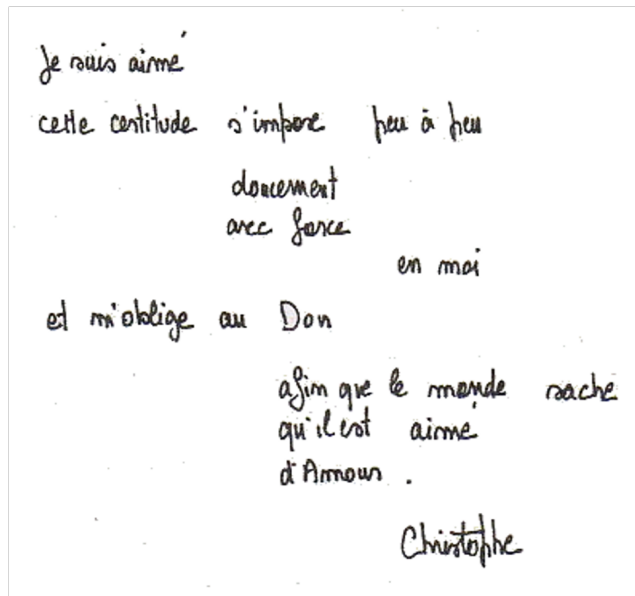 Je suis aimé
cette certitude s'impose peu à peu
doucement
avec force
en moi
et m'oblige au Don
afin que le monde sache
qu'il est aimé
d'Amour.
Christophe